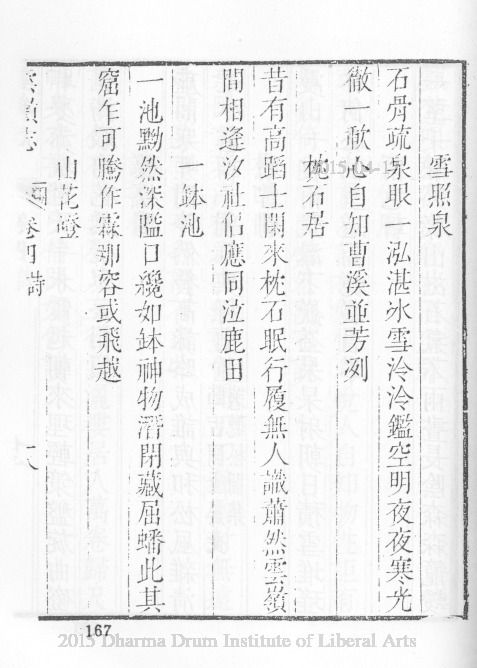 雪照泉
石骨疏泉眼一泓湛冰雪泠泠鑑空明夜夜寒光
徹一歃心自知曹溪並芳冽
枕石居
昔有高蹈士閑來枕石眠行履無人識蕭然雲嶺
間相逢汐社侶應同泣鹿田
一鉢池
一池黝然深隘口纔如鉢神物潛閉藏屈蟠此其
窟乍可騰作霖那容或飛越
山花磴
卷四詩
十八
167
2015 Dharma Drum Institute of Liberal Arts